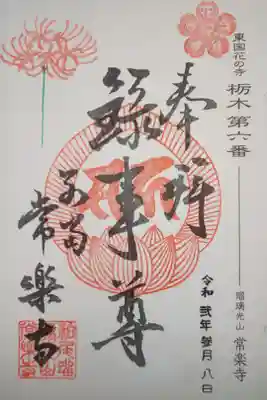 東国花の寺 栃木 第六番 瑠璃光山 常楽寺
奉拝
令和 弐年 参月 八日
録事尊
常楽寺